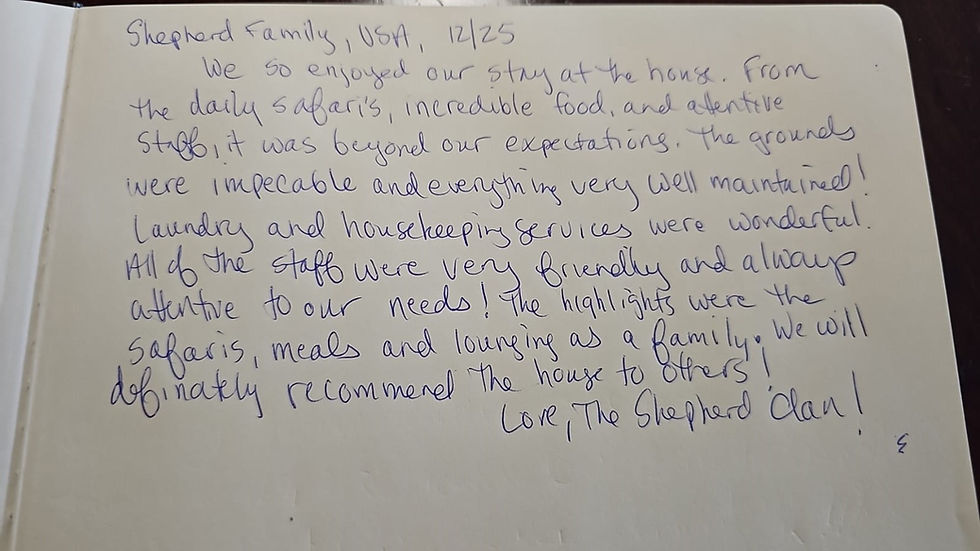 Shepherd Family, USA, 12/25
We so enjoyed our stay at the house. From
the daily safari's, incredible food, and attentive
staff, it was beyond our expectations. The grounds
were impecable and everything very well maintained!
Laundry and housekeeping services were wonderful.
All of the staff were very friendly and always
attentive to our needs! The highlights were the
safaris, meals and lounging as a family. We will
definately recommend the house to others!
Love, The Shepherd Clan!